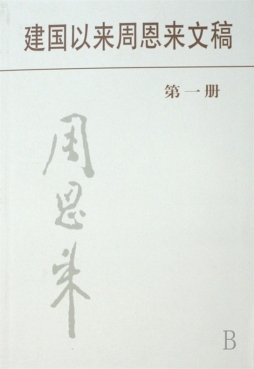 建国以来周恩来文稿
第一册
周恩来
B